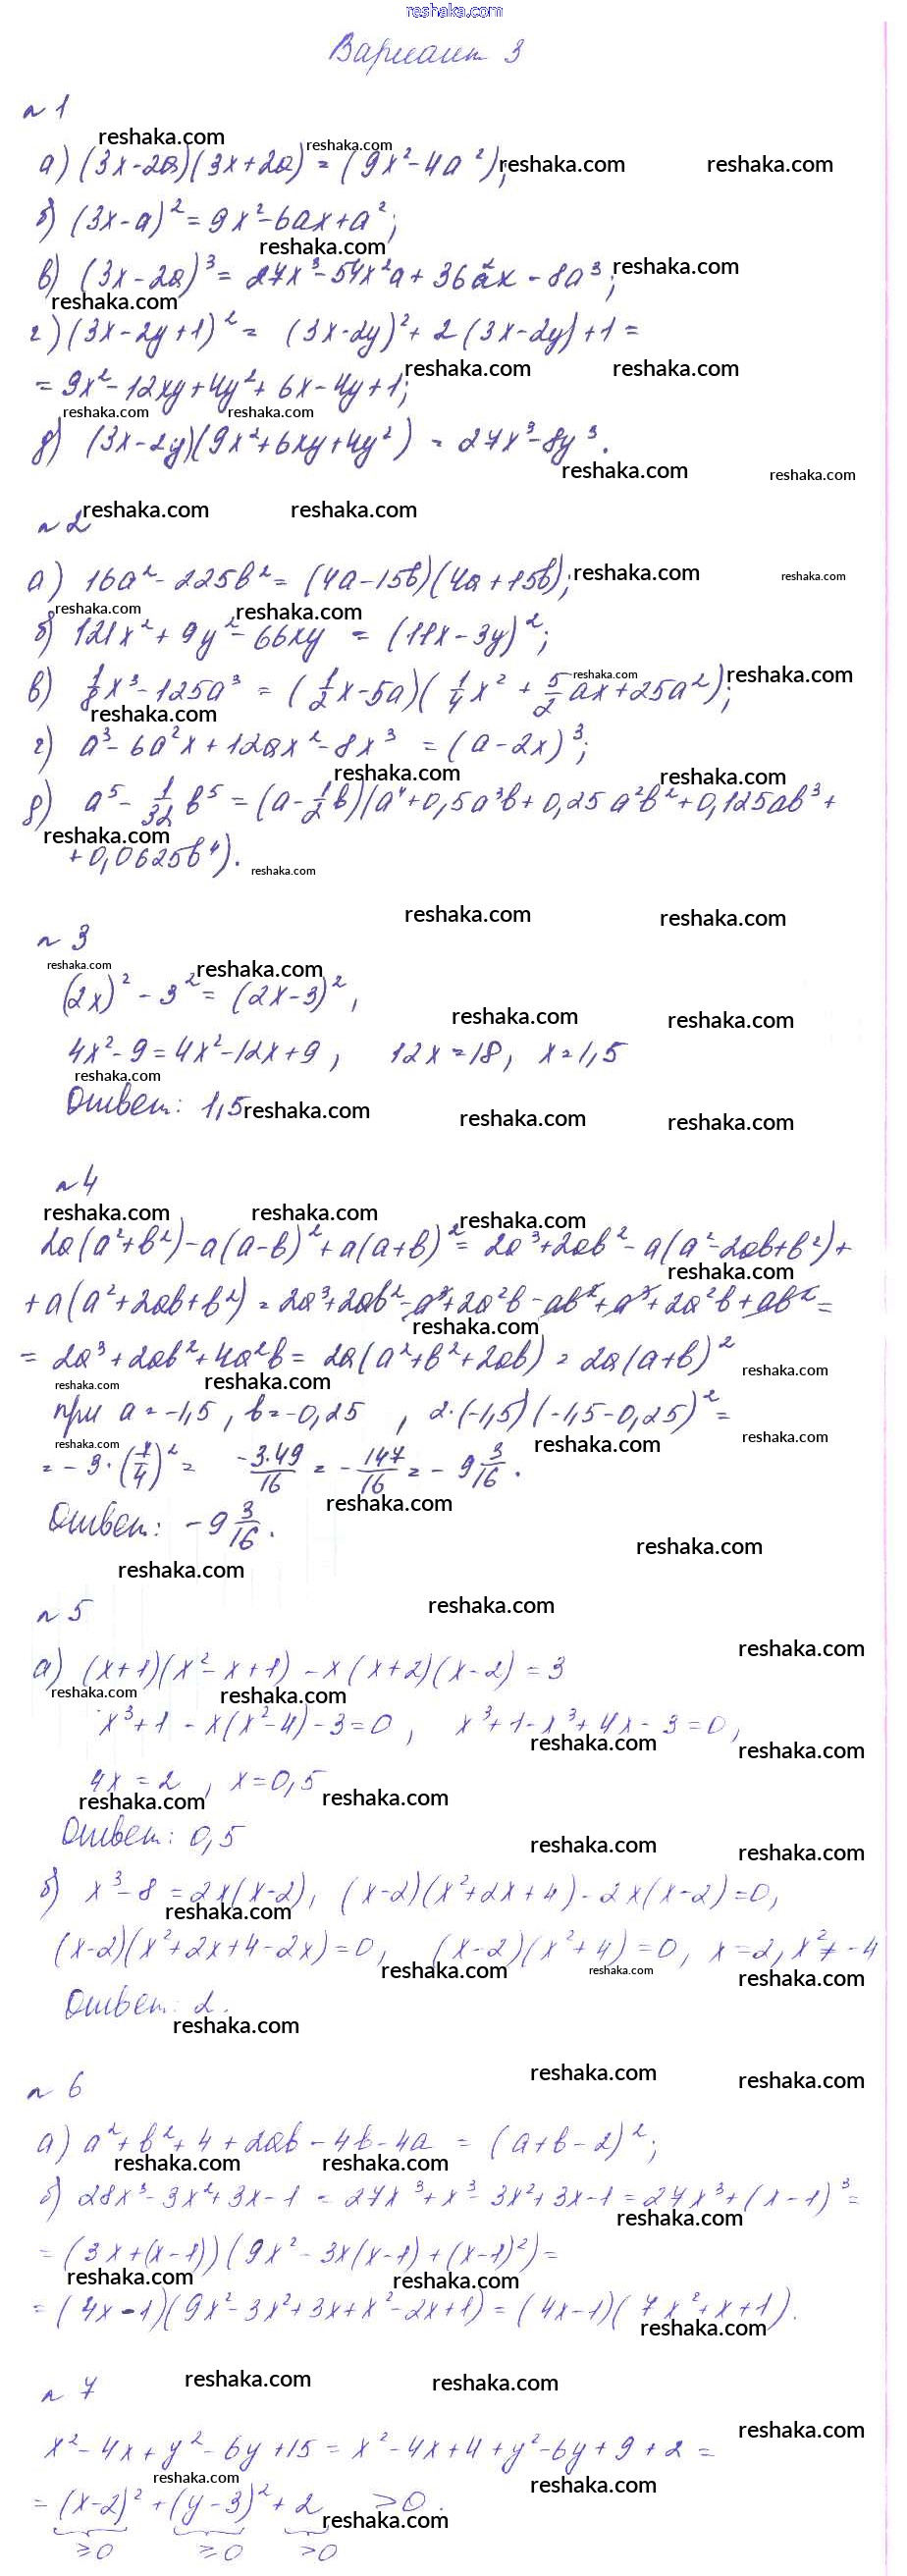 reshaka.com
Вариант 3
№ 1
а) (3x-2a)(3x+2a) = (9x²-4a²);
б) (3x-a)² = 9x²-6ax+a²;
в) (3x-2a)³ = 27x³-54x²a+36a²x-8a³;
г) (3x-2y+1)² = (3x-2y)²+2(3x-2y)+1=
=9x²-12xy+4y²+6x-4y+1;
д) (3x-2y)(9x²+6xy+4y²) = 27x³-8y³.
№ 2
а) 16a²-225b² = (4a-15b)(4a+15b);
б) 121x²+9y²-66xy = (11x-3y)²;
в) 1/8x³-125a³ = (1/2x-5a)(1/4x²+5/2ax+25a²);
г) a³-6a²x+12ax²-8x³ = (a-2x)³;
д) a⁵-1/32b⁵ = (a-1/2b)(a⁴+0,5a³b+0,25a²b²+0,125ab³+
+0,0625b⁴).
№ 3
(2x)²-3² = (2x-3)²,
4x²-9=4x²-12x+9, 12x=18, x=1,5
Ответ: 1,5
№ 4
2a(a²+b²)-a(a-b)²+a(a+b)² = 2a³+2ab²-a(a²-2ab+b²)+
+a(a²+2ab+b²) = 2a³+2ab²-a³+2a²b-ab²+a³+2a²b+ab²=
= 2a³+2ab²+4a²b = 2a(a²+b²+2ab) = 2a(a+b)²
при a=-1,5, b=-0,25, 2·(-1,5)(-1,5-0,25)²=
= -3·(7/4)² = -3·49/16 = -147/16 = -9 3/16.
Ответ: -9 3/16.
№ 5
а) (x+1)(x²-x+1)-x(x+2)(x-2)=3
x³+1-x(x²-4)-3=0, x³+1-x³+4x-3=0,
4x=2, x=0,5
Ответ: 0,5
б) x³-8=2x(x-2), (x-2)(x²+2x+4)-2x(x-2)=0,
(x-2)(x²+2x+4-2x)=0, (x-2)(x²+4)=0, x=2, x²≠-4
Ответ: 2.
№ 6
а) a²+b²+4+2ab-4b-4a = (a+b-2)²;
б) 28x³-3x²+3x-1 = 27x³+x³-3x²+3x-1=27x³+(x-1)³=
=(3x+(x-1))(9x²-3x(x-1)+(x-1)²)=
=(4x-1)(9x²-3x²+3x+x²-2x+1)=(4x-1)(7x²+x+1).
№ 7
x²-4x+y²-6y+15=x²-4x+4+y²-6y+9+2=
=(x-2)²+(y-3)²+2 >0.
≥0 ≥0 >0